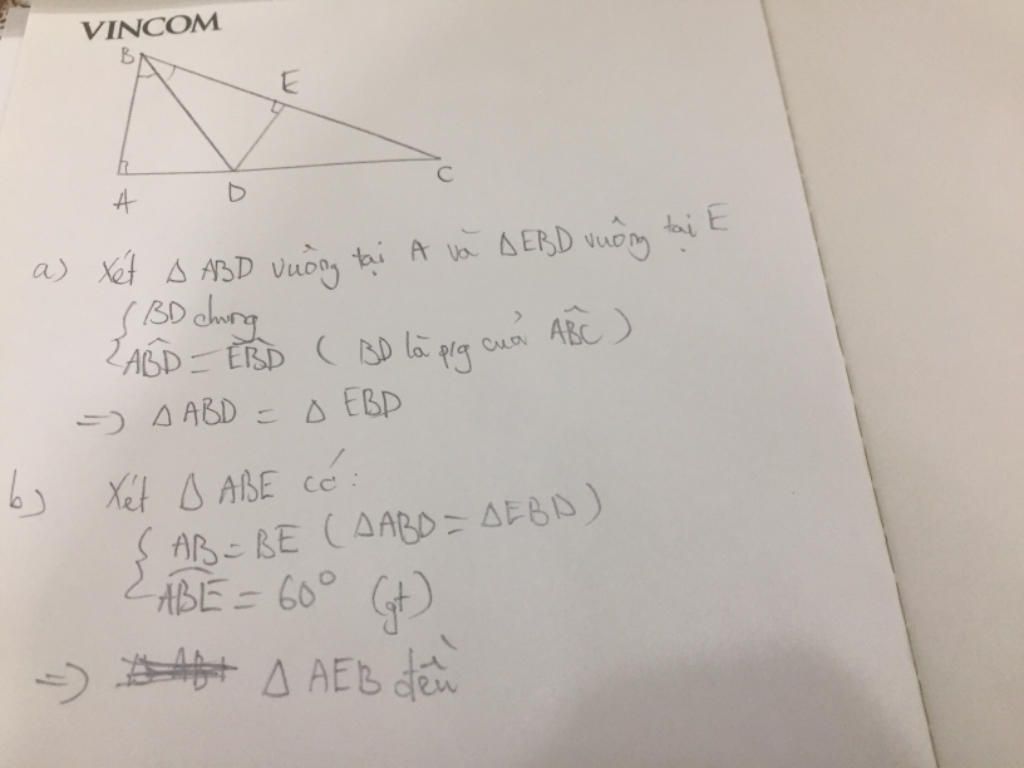 VINCOM
B
E
A
D
C
a) Xét Δ ABD vuông tại A và ΔEBD vuông tại E
{ BD chung
{ ABD̂ = EBD̂ ( BD là p/g của ABĈ )
=> Δ ABD = Δ EBD
b) Xét Δ ABE có:
{ AB = BE ( ΔABD = ΔEBD )
{ ABÊ = 60° (gt)
=> Δ AEB đều